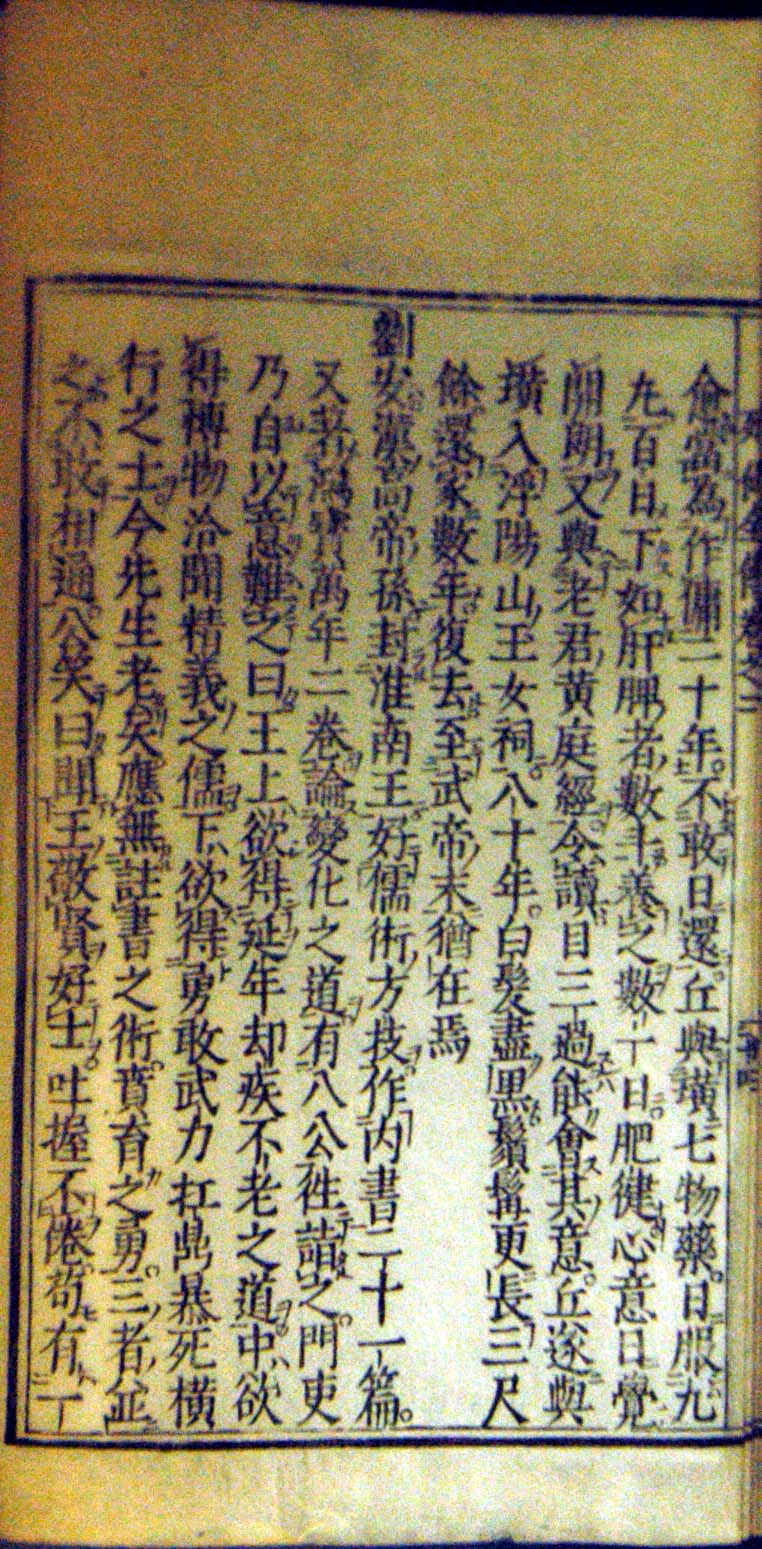 儈當為作傭二十年不敢日還丘與璜七物藥日服九
九百日下如肝脾者數斗養之數十日肥健心意日覺
開朗又與老君黃庭經令讀日三過能會其意丘遂與
璜入浮陽山玉女祠八十年白髮盡黑鬚髯更長三尺
餘還家數年復去至武帝末猶在焉
劉安漢高帝孫封淮南王好儒術方技作內書二十一篇
又著鴻寶萬年二卷論變化之道有八公徃詣之門吏
乃自以意難之曰王上欲得延年却疾不老之道中欲
得博物洽聞精義之儒下欲得勇敢武力扛鼎暴死橫
行之士今先生老矣應無註書之術賁育之勇三者並
之不敢相通公笑曰聞王敬賢好士吐握不倦苟有一